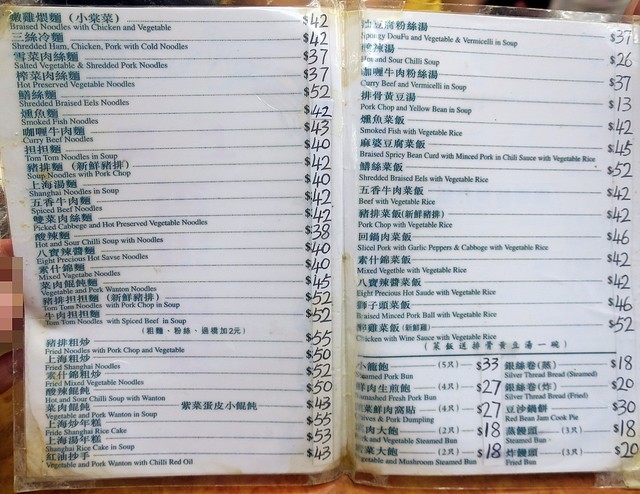 嫩雞煨麵（小棠菜） $42
Braised Noodles with Chicken and Vegetable
三絲冷麵 $42
Shredded Ham, Chicken, Pork with Cold Noodles
雪菜肉絲麵 $37
Salted Vegetable & Shredded Pork Noodles
榨菜肉絲麵 $37
Hot Preserved Vegetable Noodles
鱔絲麵 $52
Shredded Braised Eels Noodles
燻魚麵 $42
Smoked Fish Noodles
咖喱牛肉麵 $43
Curry Beef Noodles
担担麵 $40
Tom Tom Noodles in Soup
豬排麵（新鮮豬排） $42
Soup Noodles with Pork Chop
上海湯麵 $40
Shanghai Noodles in Soup
五香牛肉麵 $42
Spiced Beef Noodles
雙菜肉絲麵 $42
Picked Cabbege and Hot Preserved Vegetable Noodles
酸辣麵 $38
Hot and Sour Chilli Soup with Noodles
八寶辣醬麵 $40
Eight Precious Hot Savse Noodles
素什錦麵 $40
Mixed Vagetabe Noodles
菜肉餛飩麵 $45
Vegetable and Pork Wanton Noodles
豬排担担麵（新鮮豬排） $52
Tom Tom Noodles with Pork Chop in Soup
牛肉担担麵 $52
Tom Tom Noodles with Spiced Beef in Soup
（粗麵・粉絲・過橋加2元）
豬排粗炒 $55
Fried Noodles with Pork Chop and Vegetable
上海粗炒 $50
Fried Shanghai Noodles
素什錦粗炒 $52
Fried Mixed Vegetable Noodles
酸辣餛飩 $50
Hot and Sour Chilli Soup with Wanton
菜肉餛飩 紫菜蛋皮小餛飩 $43
Vegetable and Pork Wanton in Soup
上海炒年糕 $55
Fride Shanghai Rice Cake
上海湯年糕 $53
Shanghai Rice Cake in Soup
紅油抄手 $43
Vegetable and Pork Wanton with Chilli Red Oil
油豆腐粉絲湯 $37
Spongy DouFu and Vegetable & Vermicelli in Soup
辣湯 $26
Hot and Sour Chilli Soup
咖喱牛肉粉絲湯 $37
Curry Beef and Vermicelli in Soup
排骨黃豆湯 $13
Pork Chop and Yellow Bean in Soup
燻魚菜飯 $42
Smoked Fish with Vegetable Rice
麻婆豆腐菜飯 $45
Braised Spicy Bean Curd with Minced Pork in Chili Sauce with Vegetable Rice
鱔絲菜飯 $52
Shredded Braised Eels with Vegetable Rice
五香牛肉菜飯 $42
Beef with Vegetable Rice
豬排菜飯(新鮮豬排) $42
Pork Chop with Vegetable Rice
回鍋肉菜飯 $46
Sliced Pork with Garlic Peppers & Cabboge with Vegetable Rice
素什錦菜飯 $42
Mixed Vegetble with Vegetable Rice
八寶辣醬菜飯 $42
Eight Precious Hot Saude with Vegetable Rice
獅子頭菜飯 $46
Braised Minced Pork Ball with Vegetable Rice
醉雞菜飯(新鮮雞) $52
Chicken with Wine Sauce with Vegetable Rice
（菜飯送排骨黃豆湯一碗）
小籠飽 (5只) $33 銀絲卷(蒸) $18
Steamed Pork Bun Silver Thread Bread (Steamed)
鮮肉生煎飽 (4只) $27 銀絲卷(炸) $20
Fresh Pork Bun Silver Thread Bread (Fried)
菜鮮肉窩貼 (4只) $27 豆沙鍋餅 $30
& Pork Dumpling Red Bean Jam Cook Pie
肉大飽 (2只) $18 蒸饅頭 (3只) $18
and Vegetable Steamed Bun Steamed Bun
菜大飽 (2只) $18 炸饅頭 (3只) $20
Vegetable and Mushroom Steamed Bun Fried Bun